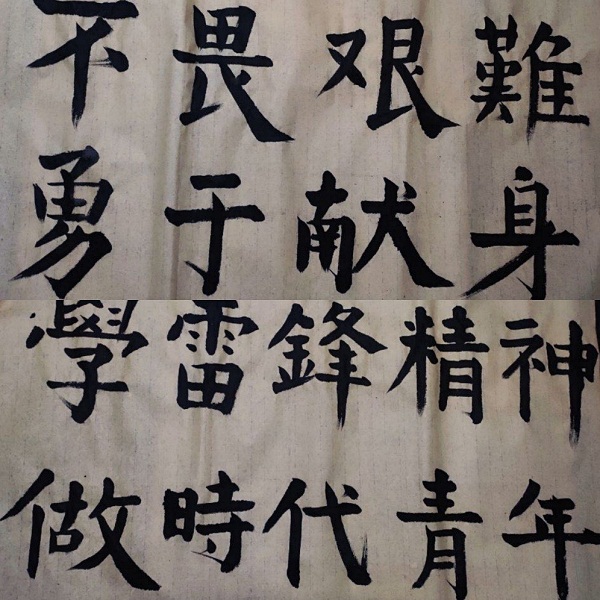 不畏艰難
勇于献身
學雷鋒精神
做時代青年